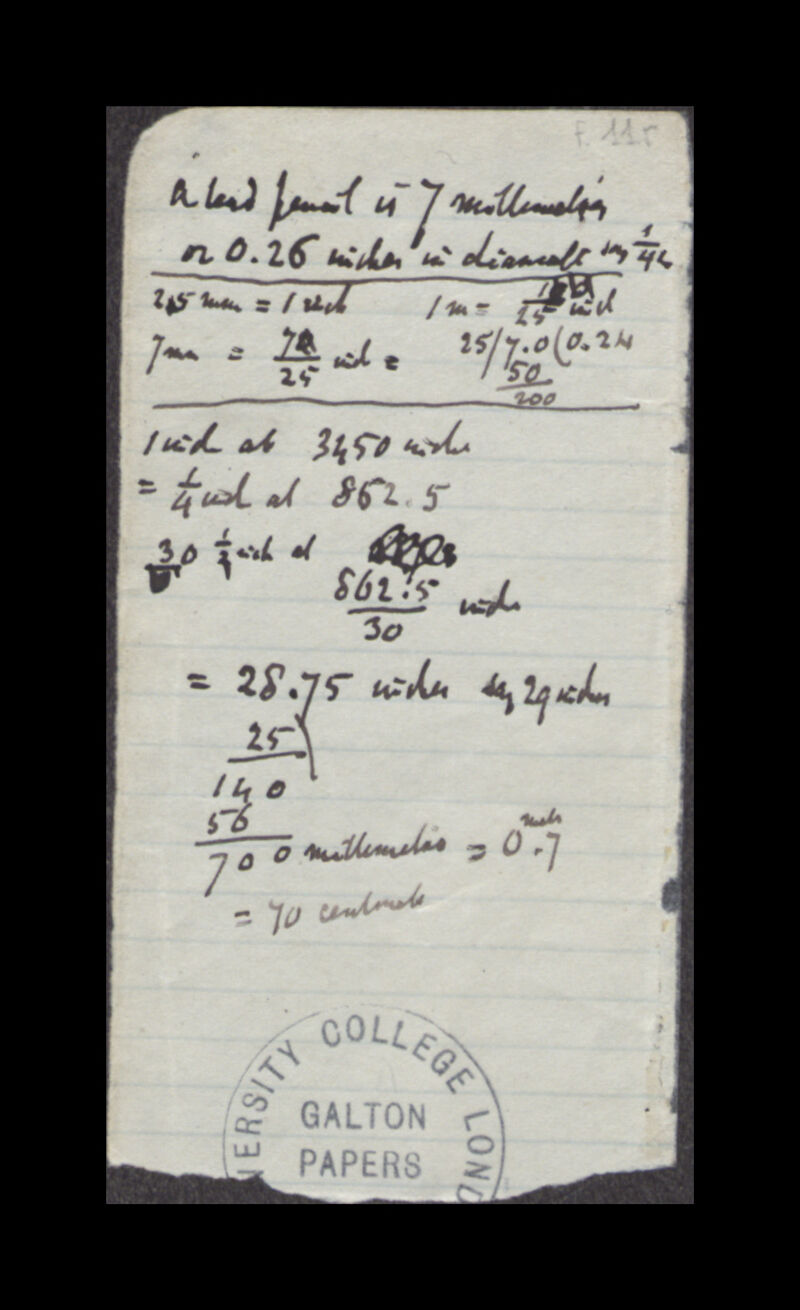 f. 11r
A lead pencil is 7 millimetres
or 0.26 inches in diamete say 1/4 in
25 mm = 1 inch 1 m = 1/25 inch
7 mm = 7/25 inch = 25/7.0(0.24
50
200
1 inch at 3450 inche
= 1/4 inch at 862.5
30 1/4 inch at
862.5/30 inche
= 28.75 inches say 29 inches
25
140
56
700 millimetres = 0.7 metr
= 70 centimet
VERSITY COLLEGE LOND
GALTON
PAPERS